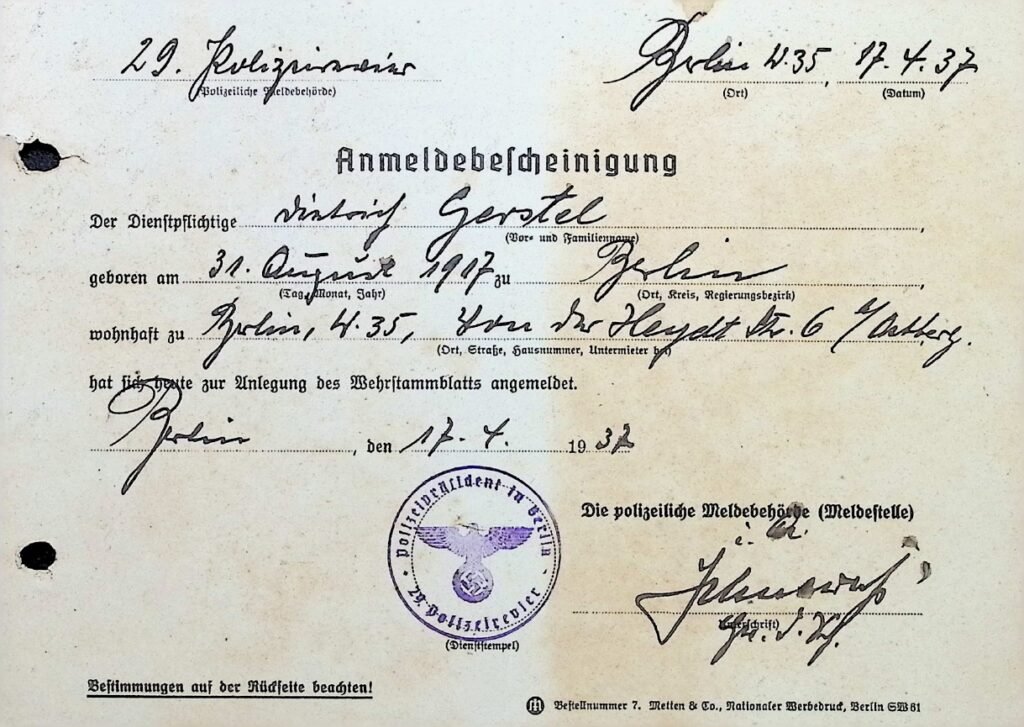 29. Polizeirevier
(Polizeiliche Meldebehörde)
Berlin W.35, 17.4.37
(Ort) (Datum)
Anmeldebescheinigung
Der Dienstpflichtige Dietrich Gerstel,
(Vor- und Familienname)
geboren am 31. August 1917 zu Berlin,
(Tag, Monat, Jahr) (Ort, Kreis, Regierungsbezirk)
wohnhaft zu Berlin, W.35, Von der Heydt Str. 6
(Ort, Straße, Hausnummer, Untermieter bei)
hat sich heute zur Anlegung des Wehrstammblatts angemeldet.
Berlin, den 17.4. 1937
Der Polizeipräsident in Berlin
29. Polizeirevier
(Dienststempel)
Die polizeiliche Meldebehörde (Meldestelle)
i. A.
(Unterschrift)
Bestimmungen auf der Rückseite beachten!
Bestellnummer 7. Metten & Co., Nationaler Werbedruck, Berlin SW 61